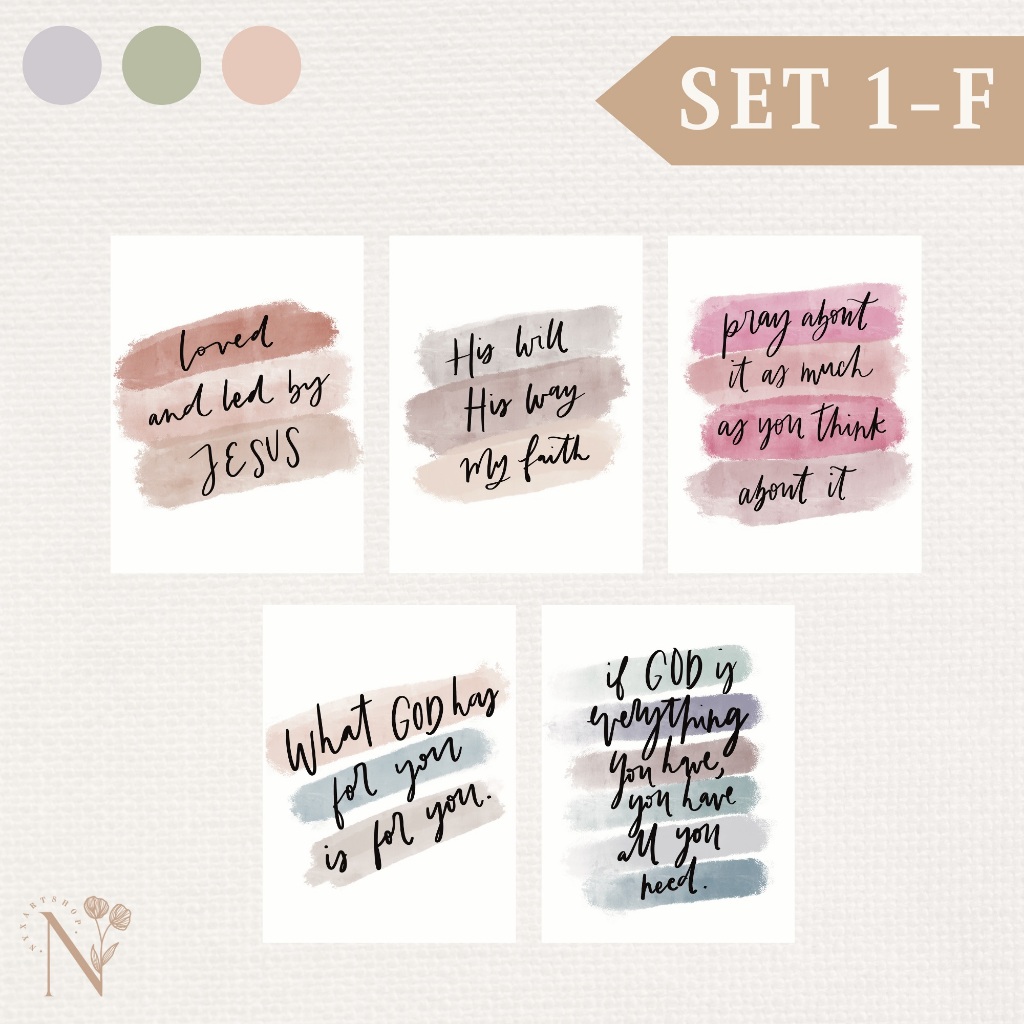 SET 1-F
loved
and led by
JESUS
His will
His way
My faith
pray about
it as much
as you think
about it
What GOD has
for you
is for you.
if GOD is
everything
you have,
you have
all you
need.
N